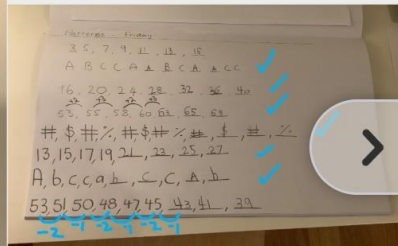 3 5, 7, 9, 11, 13, 15
A B C C A A B C A A C C
16, 20, 24, 28, 32, 36, 40
53, 55, 58, 60, 63, 65, 68
#, $, #, %, #, $, #, %, #, $, #, %
13, 15, 17, 19, 21, 23, 25, 27
A, b, c, c, a, b, c, c, A, b
53, 51, 50, 48, 47, 45, 43, 41, 39
-2 -1 -2 -1 -2 -1